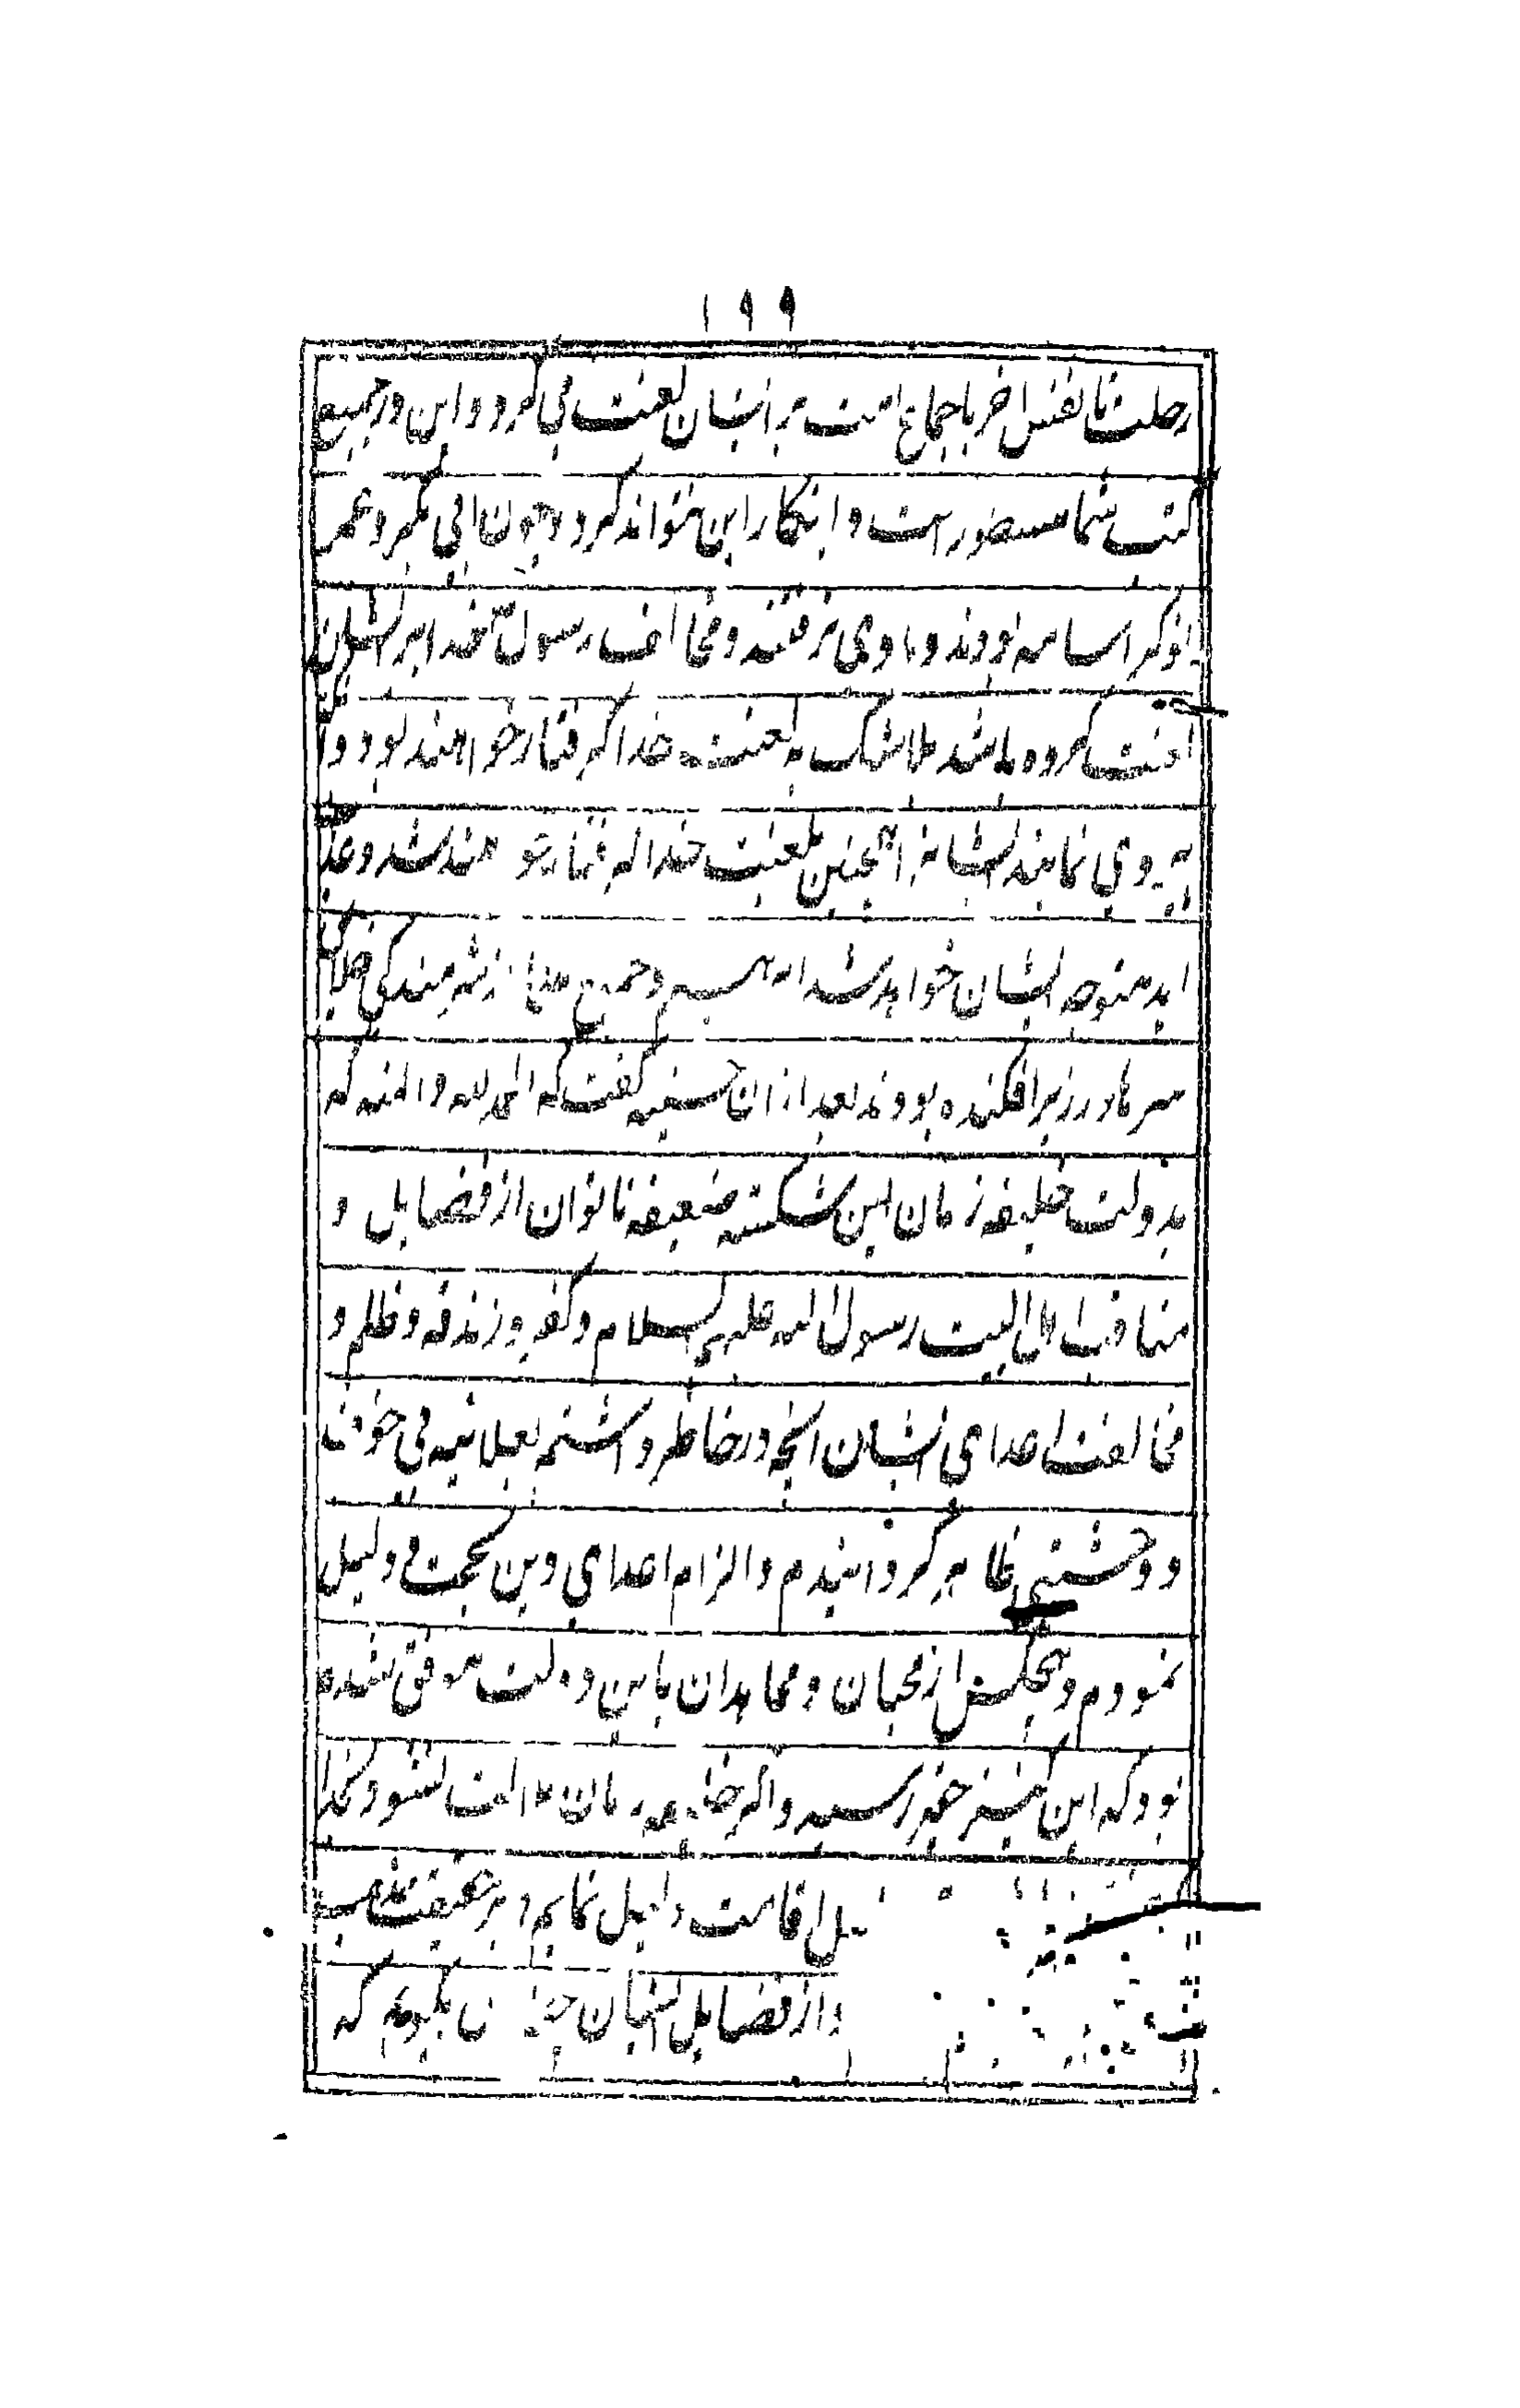 ۱۹۹
رحلت تا نفس اخر باجماع امت بر ایشان لعنت می کرد و این در جمیع
کتب شما مسطور است و انکار این نتواند کرد و چون ابی بکر و عمر
نوکر اسامه بودند و با وی نرفتند و مخالف رسول خدا بر ایشان
لعنت کرده باشد بلا شک به لعنت خدا گرفتار خواهند بود و
پیروی نمایند ایشانرا همچنین بلعنت خدا گرفتار خواهند شد و عذاب
ابد متوجه ایشان خواهد شد و جمیع از شرمندگی
سرها در زیر افکنده بودند بعد از ان حسنیه گفت که الحمد لله والمنه که
بدولت خلیفه زمان این شکسته ضعیفه ناتوان از فضایل و
مناقب اهل البیت رسول الله علیهم السلام و کفر و زندقه و ظلم و
مخالفت اعدای ایشان انچه در خاطر داشتم بعلانیه بی خوف
و وحشتی ظاهر گردانیدم و الزام اعدای دین بحجت و دلیل
نمودم و هیچکس از محبان و مجاهدان باین دولت موفق نشده
بود که این کنیز حقیر رسید و اگر زمان لتفت نشود
اقامت دلیل نمایم و بر حقیقت مذهب
و از فضایل ایشان که